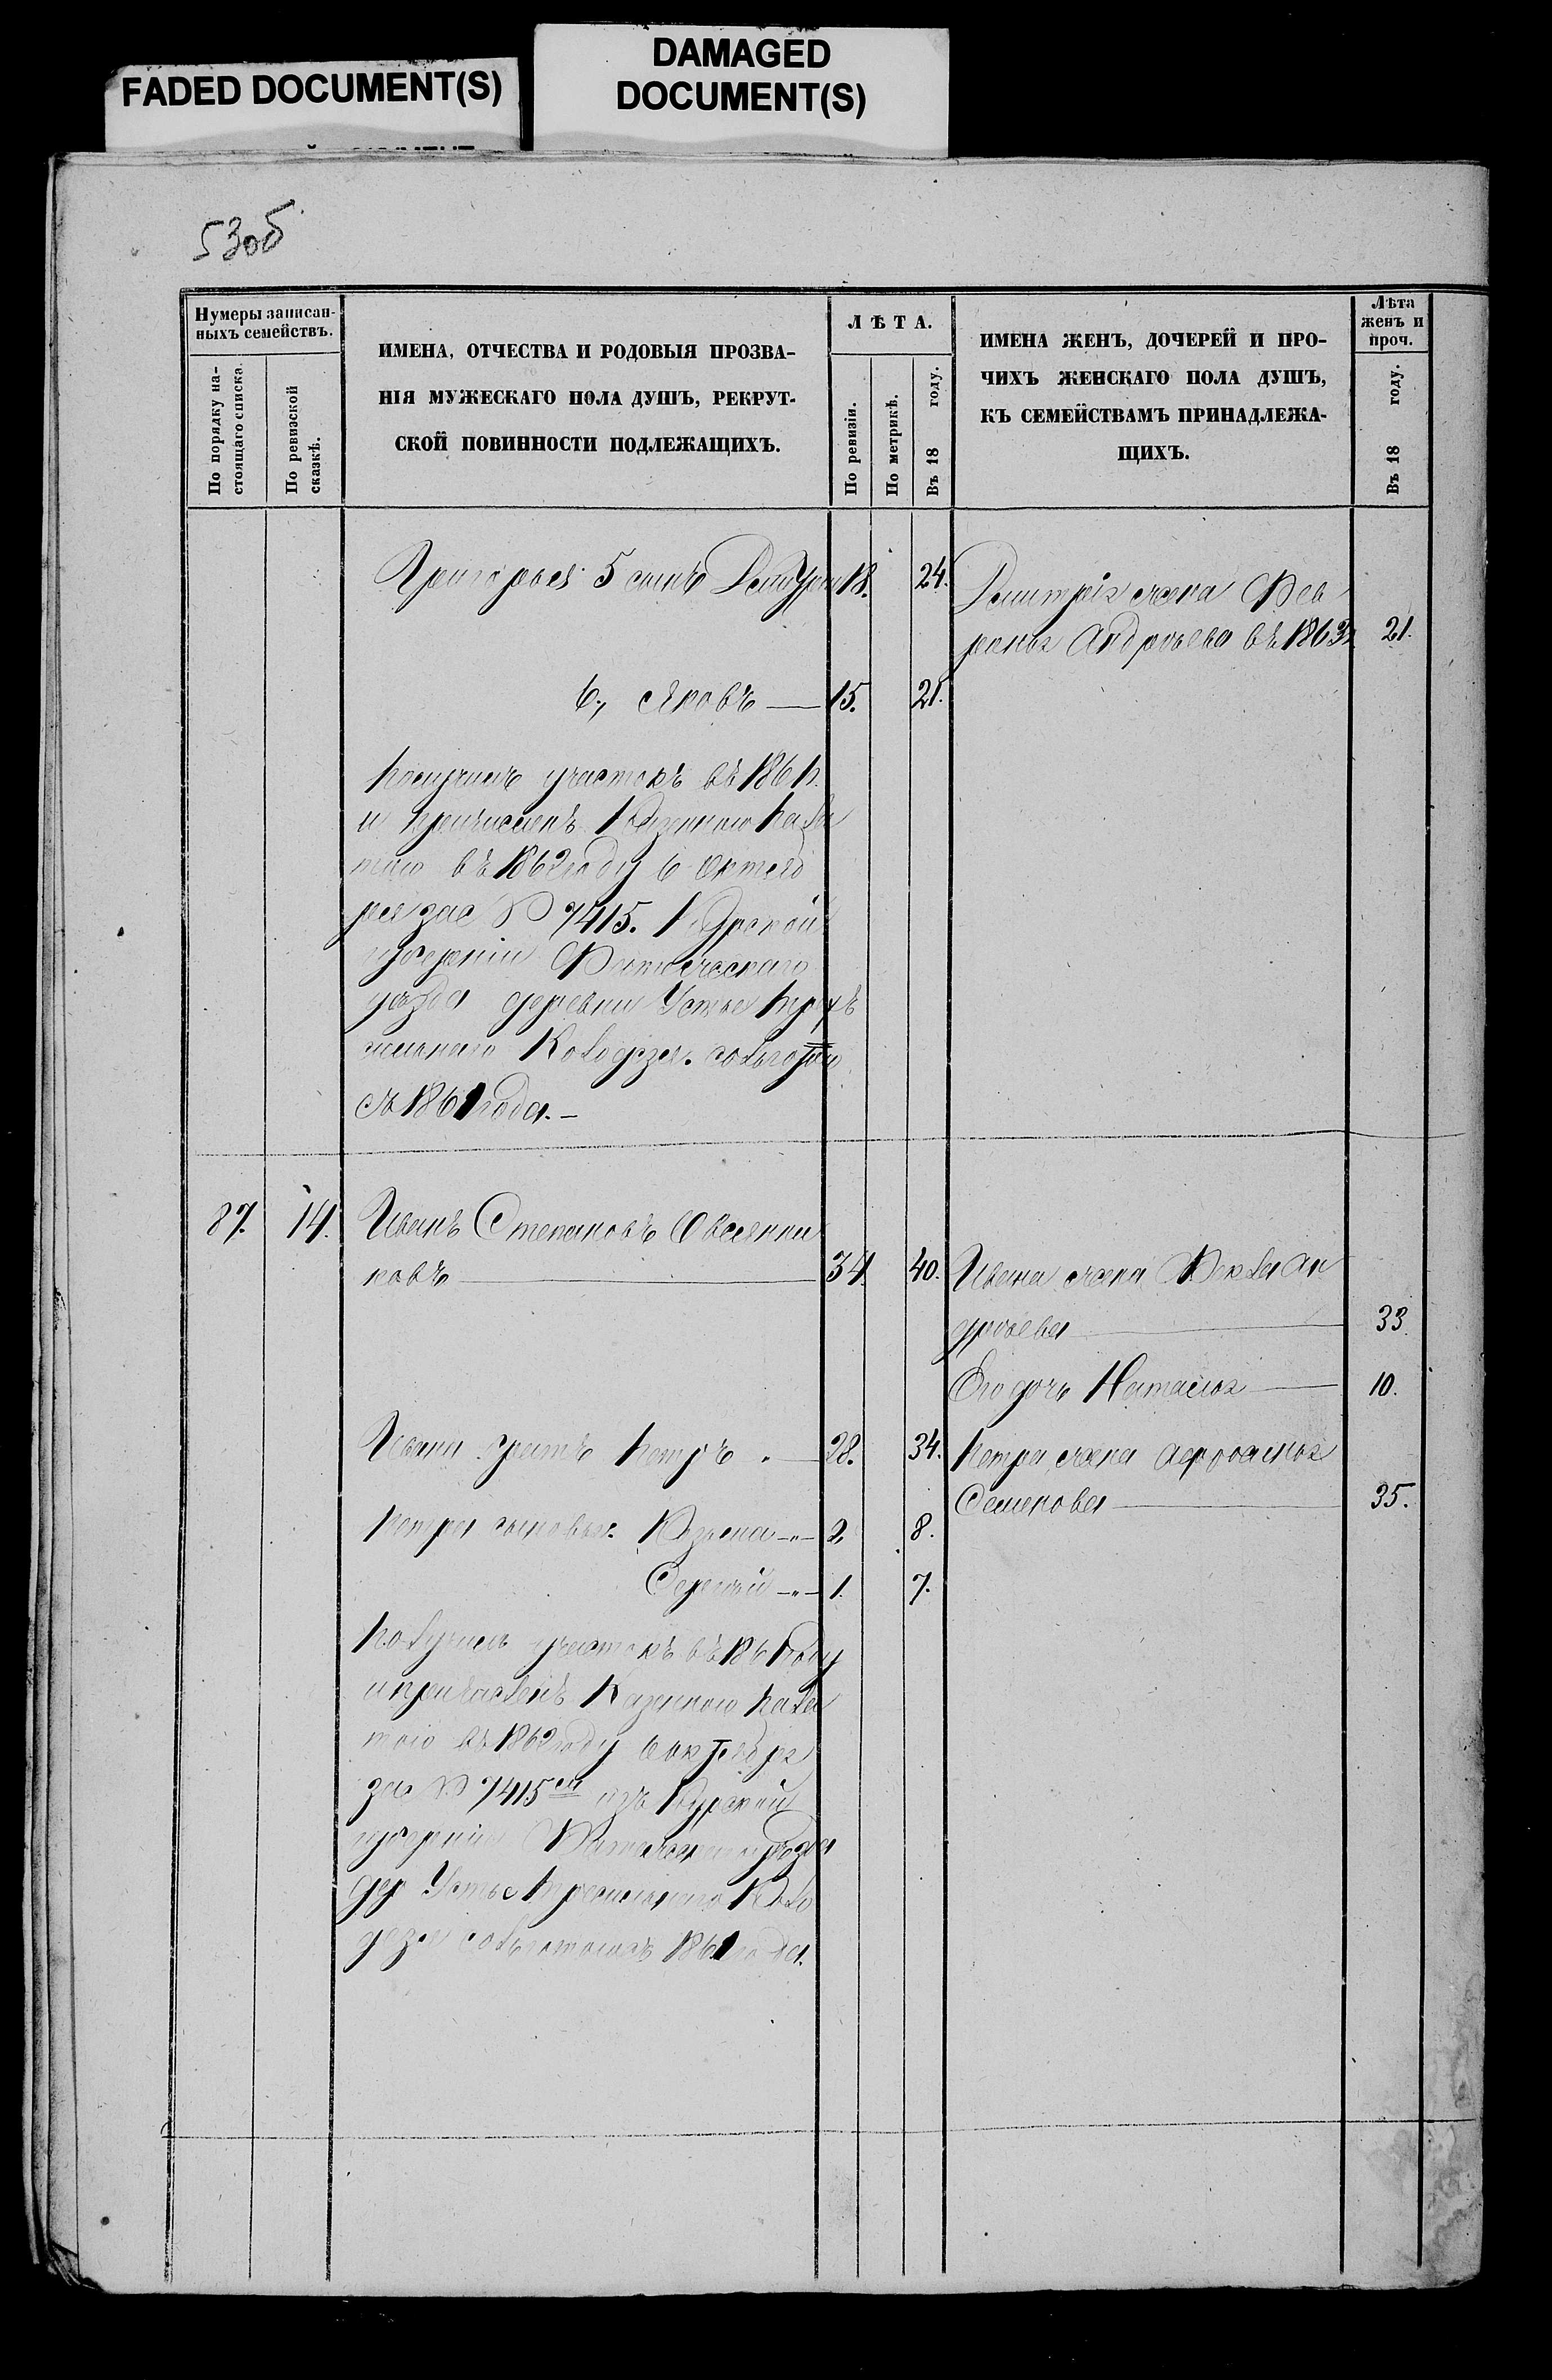 FADED DOCUMENT(S)
DAMAGED
DOCUMENT(S)
53об
Нумеры записан-
ныхъ семействъ.
По порядку на-
стоящаго списка.
По ревизской
сказкѣ.
ИМЕНА, ОТЧЕСТВА И РОДОВЫЯ ПРОЗВА-
НІЯ МУЖЕСКАГО ПОЛА ДУШЪ, РЕКРУТ-
СКОЙ ПОВИННОСТИ ПОДЛЕЖАЩИХЪ.
ЛѢТА.
По ревизіи.
По метрикѣ.
Въ 18 году.
ИМЕНА ЖЕНЪ, ДОЧЕРЕЙ И ПРО-
ЧИХЪ ЖЕНСКАГО ПОЛА ДУШЪ,
КЪ СЕМЕЙСТВАМЪ ПРИНАДЛЕЖА-
ЩИХЪ.
Лѣта
женъ и
проч.
Въ 18 году.
Григорья 5 сынъ 18. 24.
Дмитрія жена Фев
роньа Андреева въ 1863 21.
6, Яковъ — 15. 21.
Получилъ участокъ въ
и причисленъ Казенною Пала
тою въ 1862 году 6 Октяб
ря за № 7415. Курской
губерніи Фатежскаго
уѣзда деревни Устье
Колодезя. со льготою
съ 1861 года. –
87. 14. Иванъ Степановъ Овсянни
ковъ — 34. 40. Ивана жена Фекла Ан
дреева — 33.
Его дочь Наталья — 10.
Ивана братъ Петръ — 28. 34. Петра жена
Семенова — 35.
Петра сыновья: Кузьма — 2 8.
Сергѣй — 1. 7.
Получилъ участокъ въ 1861 году
и причисленъ Казенною Пала
тою въ 1862 году 6 октября
за № 7415 изъ Курской
губерніи Фатежскаго уѣзда
дер Устье Коло
дезя со льготою съ 1861 года.